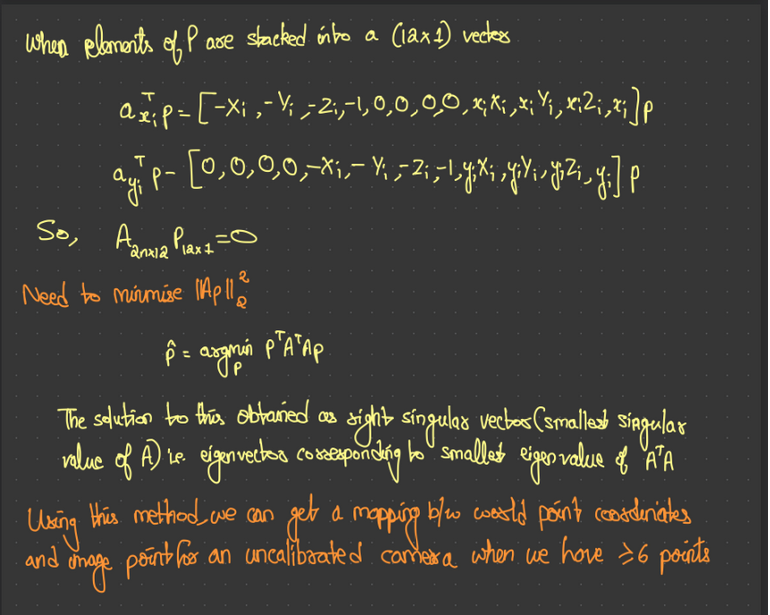 When elements of P are stacked into a (12x1) vector
a_{x_i}^T p = [-X_i, -Y_i, -Z_i, -1, 0, 0, 0, 0, x_i X_i, x_i Y_i, x_i Z_i, x_i] p
a_{y_i}^T p - [0, 0, 0, 0, -X_i, -Y_i, -Z_i, -1, y_i X_i, y_i Y_i, y_i Z_i, y_i] p
So, A_{2nx12} P_{12x1} = 0
Need to minimise ||Ap||_2^2
p̂ = argmin_p p^T A^T A p
The solution to this obtained as right singular vector (smallest singular
value of A) i.e. eigenvector corresponding to smallest eigenvalue of A^T A
Using this method, we can get a mapping b/w world point coordinates
and image point for an uncalibrated camera when we have ≥6 points